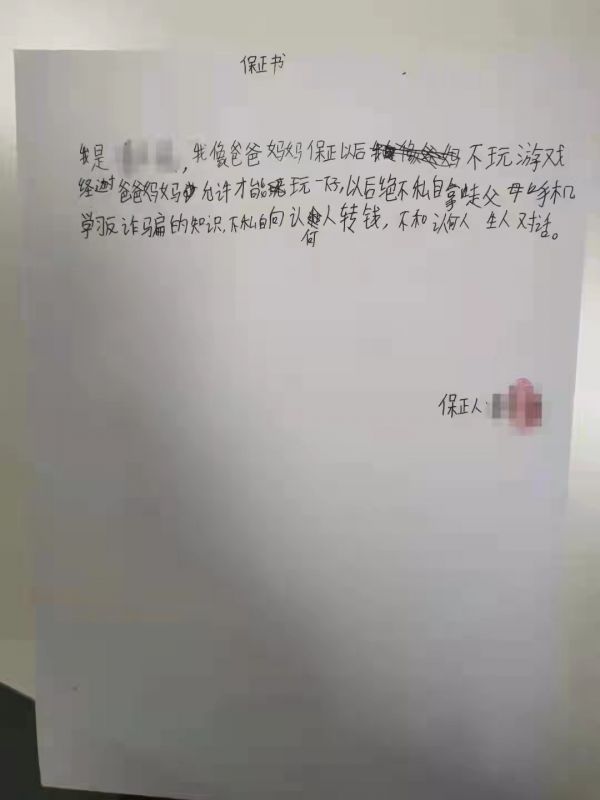 保正书
我是 ,我像爸爸妈妈保正以后 不玩游戏
经过爸爸妈妈 允许才能玩一下,以后绝不私自拿 父母 手机
学反诈骗的知识,不私自向认何人转钱,不和认何人 生人对话。
保正人: